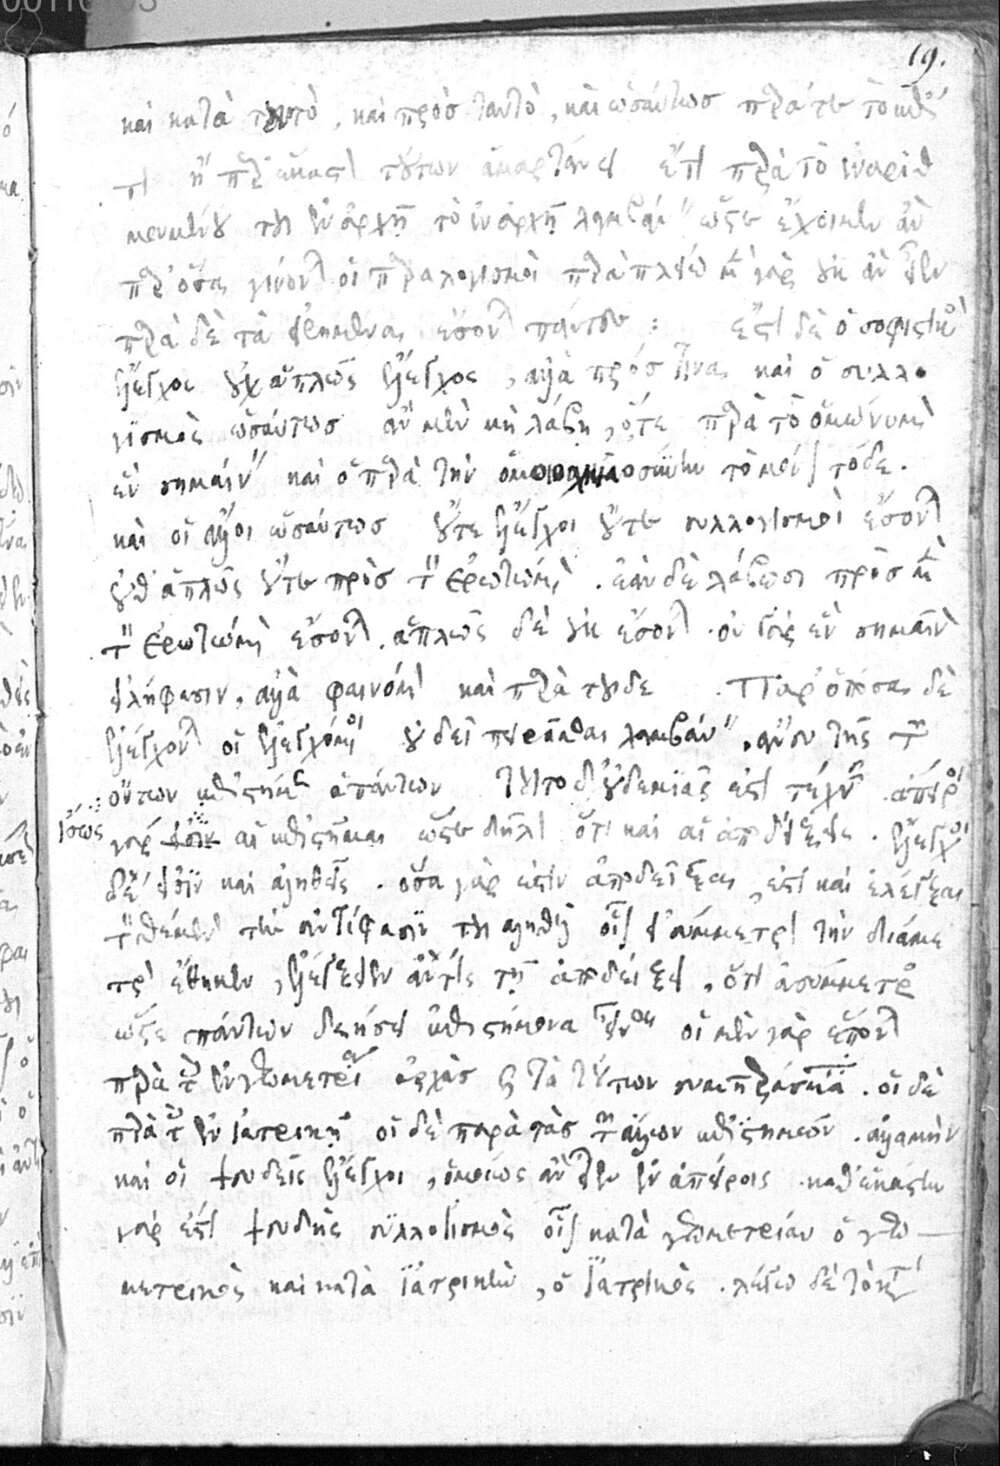 19.
καὶ κατὰ ταυτὸ, καὶ πρὸς ταυτὸ, καὶ ὡσαύτως παρά τε τὸ καθό
τι ἢ παρ' ἕκαστον τούτων ἁμαρτάνει ἔτι παρὰ τὸ ἐναριθ
μουμένου τοῦ ἐν ἀρχῇ τὸ ἐν ἀρχῇ λαμβάνειν ὥστε ἔχοιμεν ἂν
παρ' ὅσα γίνονται οἱ παραλογισμοὶ παρὰ πλείω μὲν γὰρ οὐκ ἂν εἶεν
παρὰ δὲ τὰ εἰρημένα ἔσονται πάντες : ἔστι δὲ ὁ σοφιστικὸς
ἔλεγχος οὐχ ἁπλῶς ἔλεγχος, ἀλλὰ πρός τινα καὶ ὁ συλλο
γισμὸς ὡσαύτως ἂν μὲν μὴ λάβῃ, ὅτε παρὰ τὸ ὁμώνυμον
ἓν σημαίνειν καὶ ὁ παρὰ τὴν ὁμοιοσχημοσύνην τὸ μόνον τόδε.
καὶ οἱ ἄλλοι ὡσαύτως οὔτε ἔλεγχοι οὔτε συλλογισμοὶ ἔσονται
οὔθ' ἁπλῶς οὔτε πρὸς τὸν ἐρωτώμενον. ἐὰν δὲ λάβωσι πρὸς μὲν
τὸν ἐρωτώμενον ἔσονται. ἁπλῶς δὲ οὐκ ἔσονται. οὐ γὰρ ἓν σημαῖνον
εἰλήφασιν, ἀλλὰ φαινόμενον καὶ παρὰ τοῦδε. Παρ' ὁπόσα δὲ
ἐλέγχονται οἱ ἐλεγχόμενοι οὐ δεῖ πειρᾶσθαι λαμβάνειν. ἄνευ τῆς τῶν
ὄντων ἐπιστήμης ἁπάντων τοῦτο δ' οὐδεμιᾶς ἐστὶ τέχνης. ἄπειροι
ἴσως γάρ εἰσιν αἱ ἐπιστῆμαι ὥστε δῆλον ὅτι καὶ αἱ ἀποδείξεις. ἔλεγχοι
δὲ εἰσὶν καὶ ἀληθεῖς. ὅσα γάρ ἐστιν ἀποδεῖξαι, ἔστι καὶ ἐλέγξαι
τὸν θέμενον τὴν ἀντίφασιν τοῦ ἀληθοῦς οἷον εἰ σύμμετρον τὴν διάμε
τρον ἔθηκεν, ἐλέγξειεν ἄν τις τῇ ἀποδείξει, ὅτι ἀσύμμετρος
ὥστε πάντων δεήσει ἐπιστήμονα εἶναι οἱ μὲν γὰρ ἔσονται
παρὰ τὰς ἐν γεωμετρίᾳ ἀρχὰς καὶ τὰ τούτων συμπεράσματα. οἱ δὲ
παρὰ τὰς ἐν ἰατρικῇ οἱ δὲ παρὰ τὰς τῶν ἄλλων ἐπιστημῶν. ἀλλὰ μὴν
καὶ οἱ ψευδεῖς ἔλεγχοι, ὁμοίως ἂν εἶεν ἐν ἀπείροις. καθ' ἑκάστην
γάρ ἐστι ψευδὴς συλλογισμὸς οἷον κατὰ γεωμετρίαν ὁ γεω
μετρικὸς καὶ κατὰ ἰατρικὴν, ὁ ἰατρικὸς. λέγω δὲ τὸ κατὰ